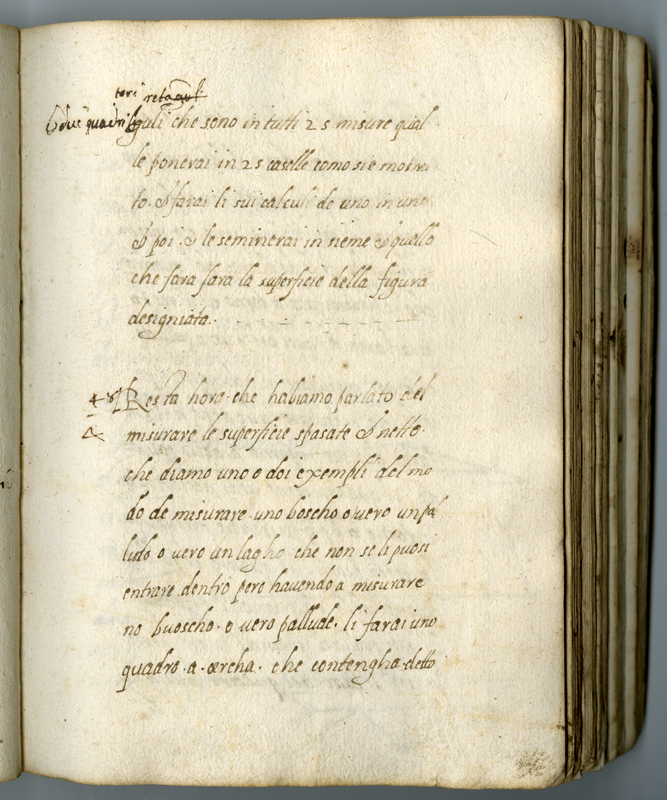 tori retaguli
6 due quadrilguli che sono in tutti 25 misure qual
le ponerai in 25 caselle como si e mostra
to. & farai li sui calculi de uno in uno
& poi. & le seminerai in sieme & quello
che fara sara la superficie della figura
designiata.
48 Resta hora che habiamo parlato del
misurare le superficie spasate & nette.
che diamo uno o doi exempli del mo
do de misurare uno boscho o vero un pal
ludo o vero un lagho che non se li puosi
entrare dentro pero havendo a misurare
no buoscho. o vero pallude. li farai uno
quadro. a. cercha. che contengha detto